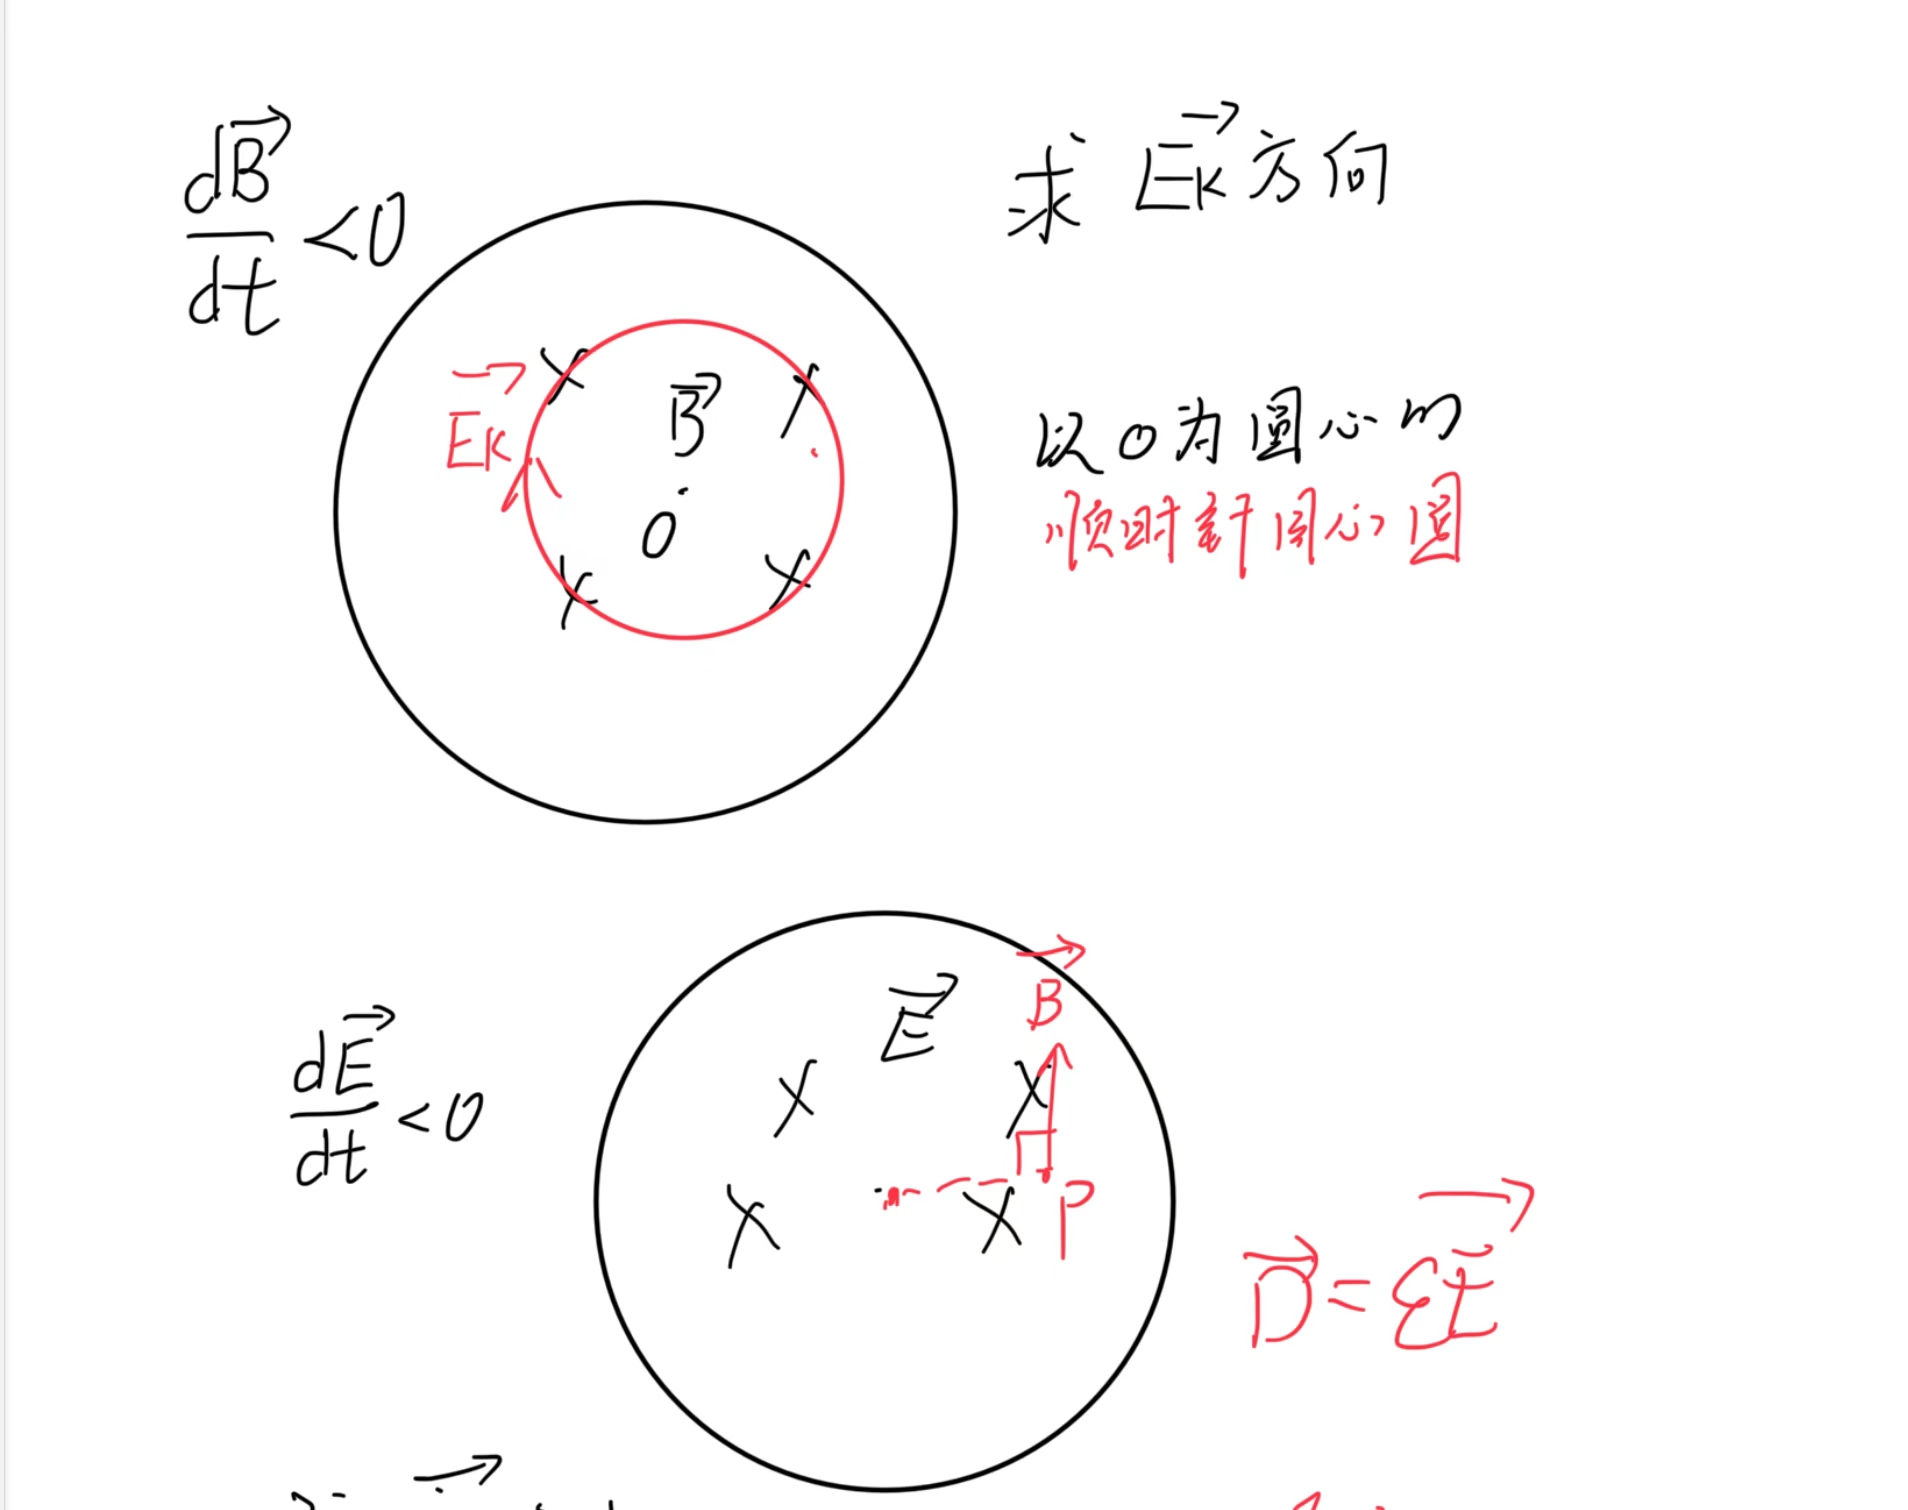 dB/dt<0
求 Ek方向
Ek
B
O
以O为圆心的
顺时针同心圆
dE/dt<0
E
B
P
D=εE